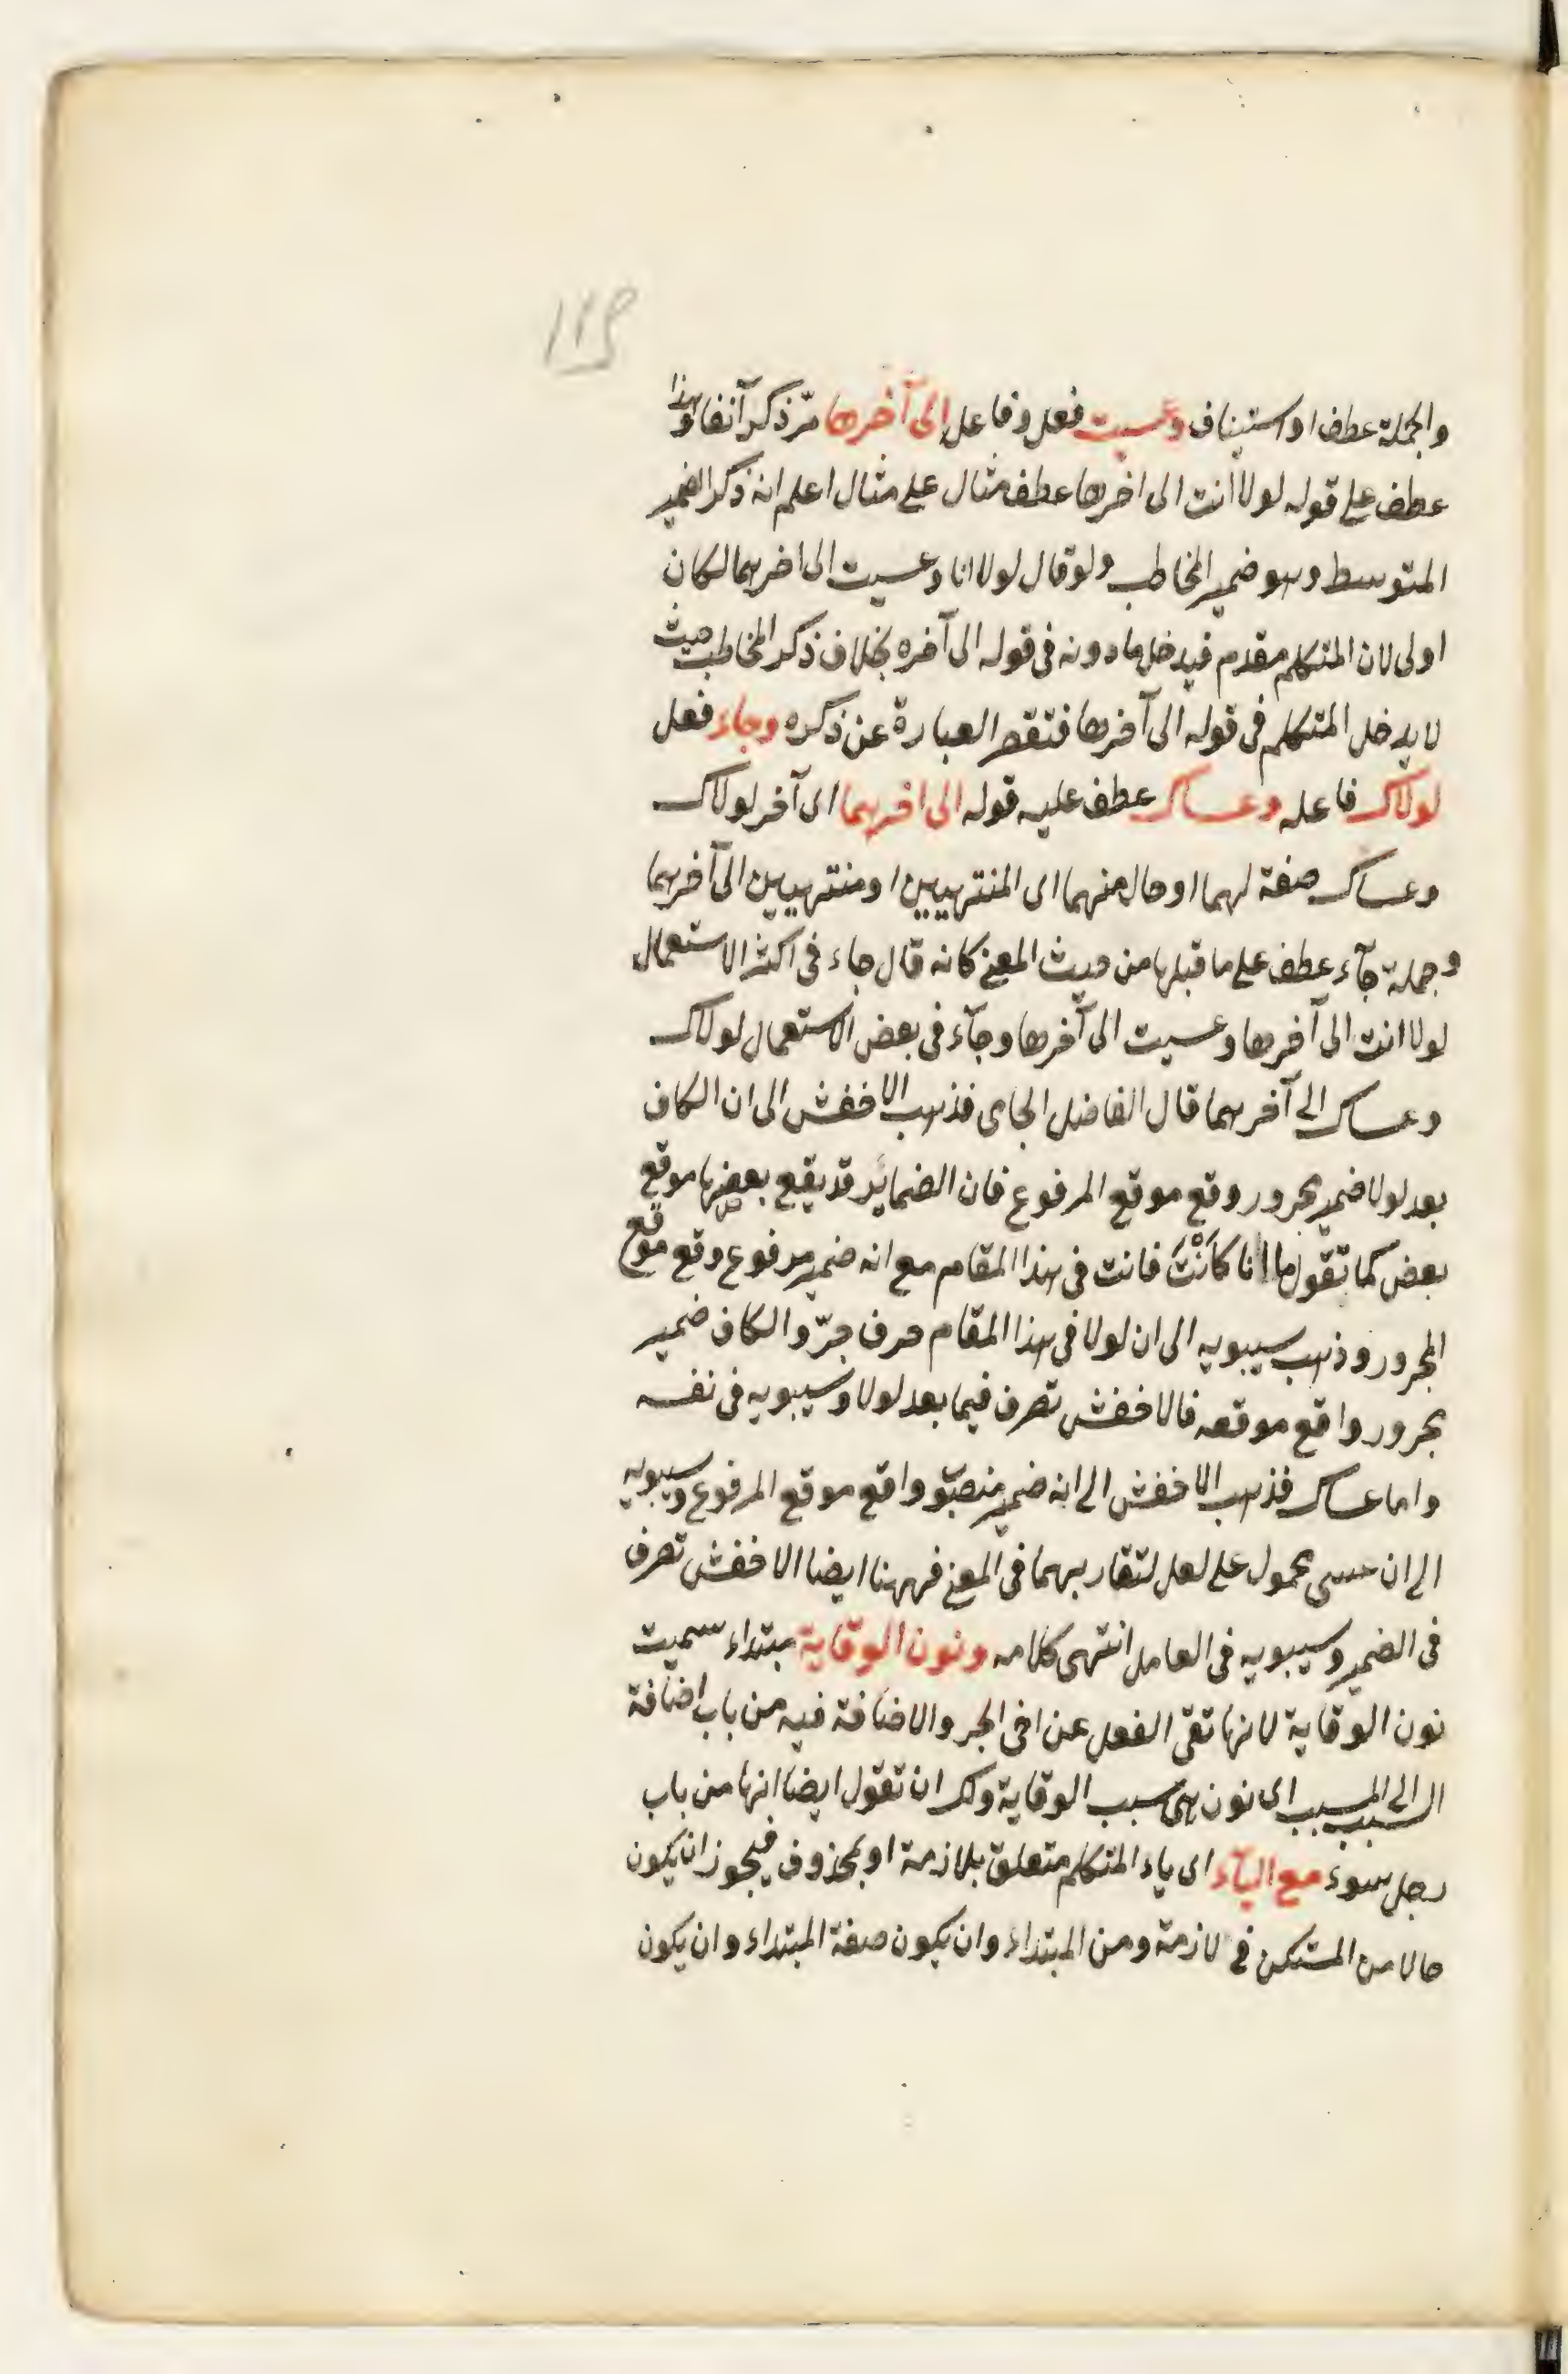 ١١٩
والجملة عطف او استيناف وعسيت فعل وفاعل الى آخرها مرّ ذكر آنفا وهذا
عطف على قوله لولا انت الى اخرها عطف مثال على مثال اعلم انه ذكر الضمير
المتوسط وهو ضمير المخاطب ولو قال لولا انا وعسيت الى اخرهما لكان
اولى لان المتكلم مقدم فيدخل ما دونه فى قوله الى آخره بخلاف ذكر المخاطب حيث
لا يدخل المتكلم فى قوله الى آخرها فتقصر العبارة عن ذكره وجاء فعل
لولاك فاعله وعساك عطف عليه قوله الى اخرهما اى آخر لولاك
وعساك صفة لهما او حال منهما اى المنتهيين او منتهيين الى آخرهما
وجملة جآء عطف على ما قبلها من حيث المعنى كانه قال جاء فى اكثر الاستعمال
لولا انت الى آخرها وعسيت الى آخرها وجآء فى بعض الاستعمال لولاك
وعساك الى آخرهما قال الفاضل الجامى فذهب الاخفش الى ان الكاف
بعد لولا ضمير مجرور وقع موقع المرفوع فان الضمائر قد يقع بعضها موقع
بعض كما تقول ما انا كَاَنْتَ فانت فى هذا المقام مع انه ضمير مرفوع وقع موقع
المجرور وذهب سيبويه الى ان لولا فى هذا المقام حرف جرّ والكاف ضمير
مجرور واقع موقعه فالاخفش تصرف فيما بعد لولا وسيبويه فى نفسه
واما عساك فذهب الاخفش الى انه ضمير منصوب واقع موقع المرفوع وسيبويه
الى ان عسى محمول على لعل لتقاربهما فى المعنى فههنا ايضا الاخفش تصرف
فى الضمير وسيبويه فى العامل انتهى كلامه ونون الوقاية مبتداء سميت
نون الوقاية لانها تقى الفعل عن اخى الجر والاضافة فيه من باب اضافة
السبب الى المسبب اى نون هى سبب الوقاية ولك ان تقول ايضا انها من باب
رجل سوء مع اليآء اى ياء المتكلم متعلق بلازمة او بمحذوف فيجوز ان يكون
حالا من المستكن فى لازمة ومن المبتداء وان يكون صفة المبتداء وان يكون